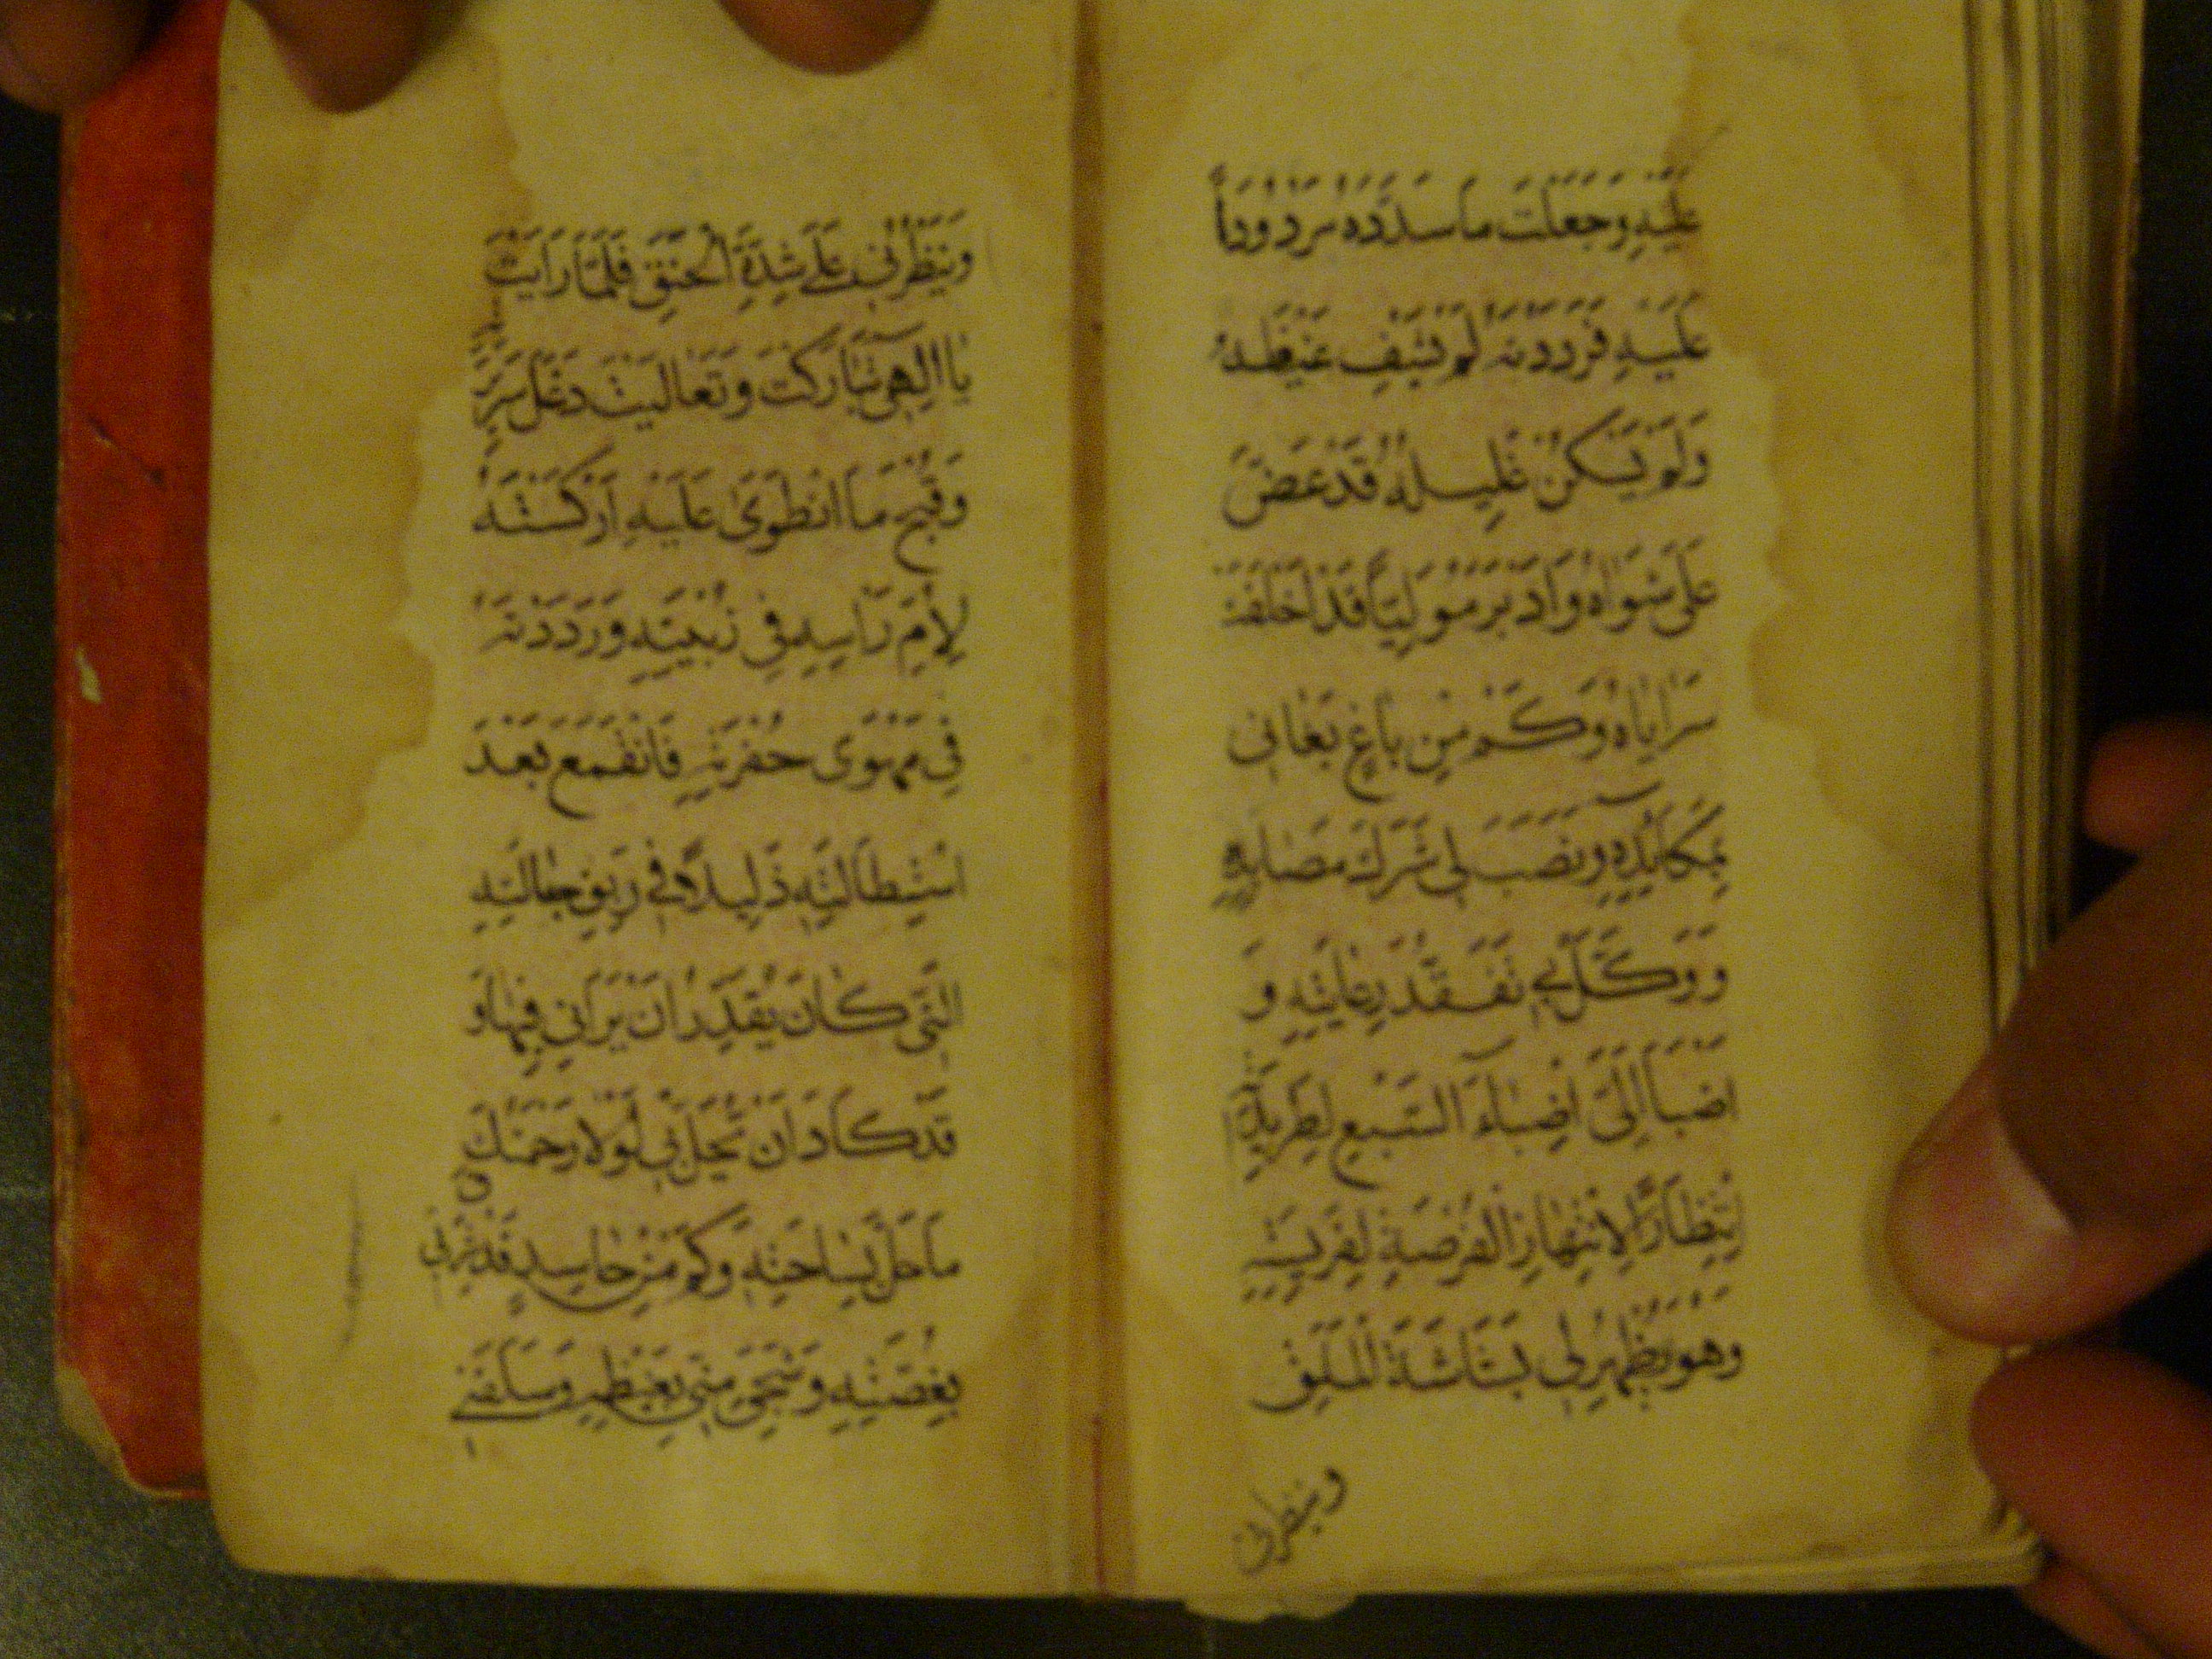 عَلَيْهِ وَجَعَلْتَ مَا سَدَّدَهُ مَرْدُودًا
عَلَيْهِ فَرَدَدْتَهُ لَمْ تَشْفِ غَيْظَهُ
وَلَمْ يَسْكُنْ غَلِيلُهُ قَدْ عَضَّ
عَلَى شَوَاهُ وَاَدْبَرَ مُوَلِّيًا قَدْ اَخْلَفَتْ
سَرَايَاهُ وَكَمْ مِنْ بَاغٍ بَغَانِي
بِمَكَآيِدِهِ وَنَصَبَ لِي شَرَكَ مَصَايِدِهِ
وَوَكَّلَ بِي تَفَقُّدَ رِعَايَتِهِ وَ
اَضْبَاَ اِلَىَّ اِضْبَآءَ السَّبُعِ لِطَرِيدَتِهِ
اِنْتِظَارًا لِاِنْتِهَازِ الْفُرْصَةِ لِفَرِيسَتِهِ
وَهُوَ يُظْهِرُ لِي بَشَاشَةَ الْمَلَقِ
وينظرني
وَيَنْظُرُنِي عَلَى شِدَّةِ الْحَنَقِ فَلَمَّا رَاَيْتَ
يَا اِلٰهِي تَبَارَكْتَ وَتَعَالَيْتَ دَغَلَ سَرِيرَتِهِ
وَقُبْحَ مَا انْطَوَى عَلَيْهِ اَرْكَسْتَهُ
لِاُمِّ رَاْسِهِ فِي زُبْيَتِهِ وَرَدَدْتَهُ
فِي مَهْوَى حُفْرَتِهِ فَانْقَمَعَ بَعْدَ
اسْتِطَالَتِهِ ذَلِيلًا فِي رِبَقِ حِبَالَتِهِ
الَّتِي كَانَ يُقَدِّرُ اَنْ يَرَانِي فِيهَا وَ
قَدْ كَادَ اَنْ يَحُلَّ بِي لَوْلَا رَحْمَتُكَ
مَا حَلَّ بِسَاحَتِهِ وَكَمْ مِنْ حَاسِدٍ قَدْ شَرِقَ بِي
بِغُصَّتِهِ وَشَجِيَ مِنِّي بِغَيْظِهِ وَسَلَقَنِي